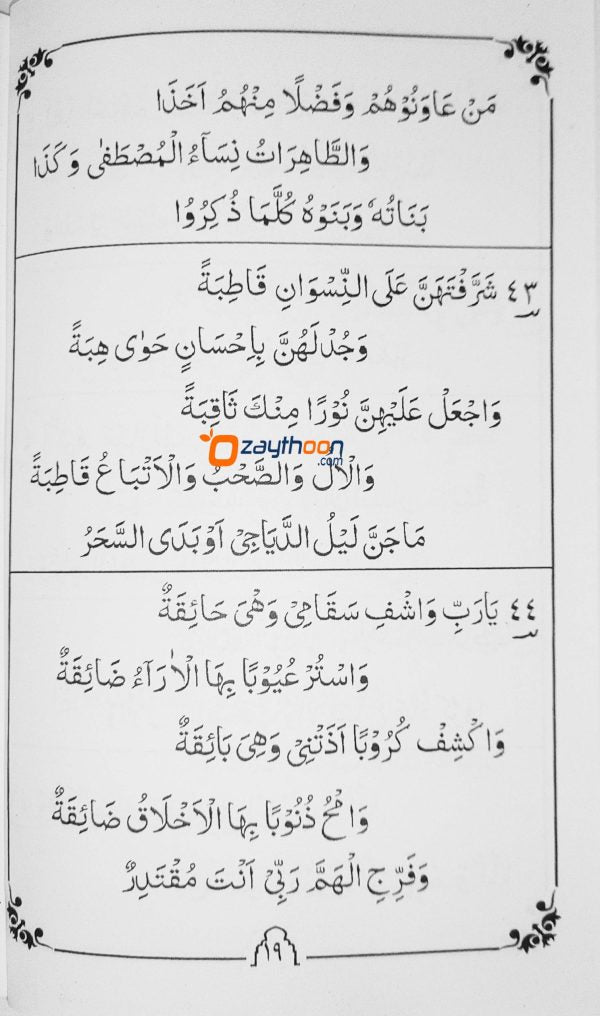 مَنْ عَاوَنُوْهُمْ وَفَضْلًا مِنْهُمُ اَخَذَا
وَالطَّاهِرَاتُ نِسَآءُ الْمُصْطَفٰى وَكَذَا
بَنَاتُهٗ وَبَنَوْهُ كُلَّمَا ذُكِرُوْا
٤٣ شَرَّفْتَهَنَّ عَلَى النِّسْوَانِ قَاطِبَةً
وَجُدْلَهُنَّ بِاِحْسَانٍ حَوٰى هِبَةً
وَاجْعَلْ عَلَيْهِنَّ نُوْرًا مِنْكَ ثَاقِبَةً
zaythoon.com
وَالْاٰلُ وَالصَّحْبُ وَالْاَتْبَاعُ قَاطِبَةً
مَاجَنَّ لَيْلُ الدَّيَاجِيْ اَوْبَدَى السَّحَرُ
٤٤ يَارَبِّ وَاشْفِ سَقَامِيْ وَهْيَ حَائِقَةٌ
وَاسْتُرْ عُيُوْبًا بِهَا الْاٰرَآءُ ضَائِقَةٌ
وَاكْشِفْ كُرُوْبًا اٰذَتْنِيْ وَهْيَ بَائِقَةٌ
وَامْحُ ذُنُوْبًا بِهَا الْاَخْلَاقُ ضَائِقَةٌ
وَفَرِّجِ الْهَمَّ رَبِّيْ اَنْتَ مُقْتَدِرٌ
١٩